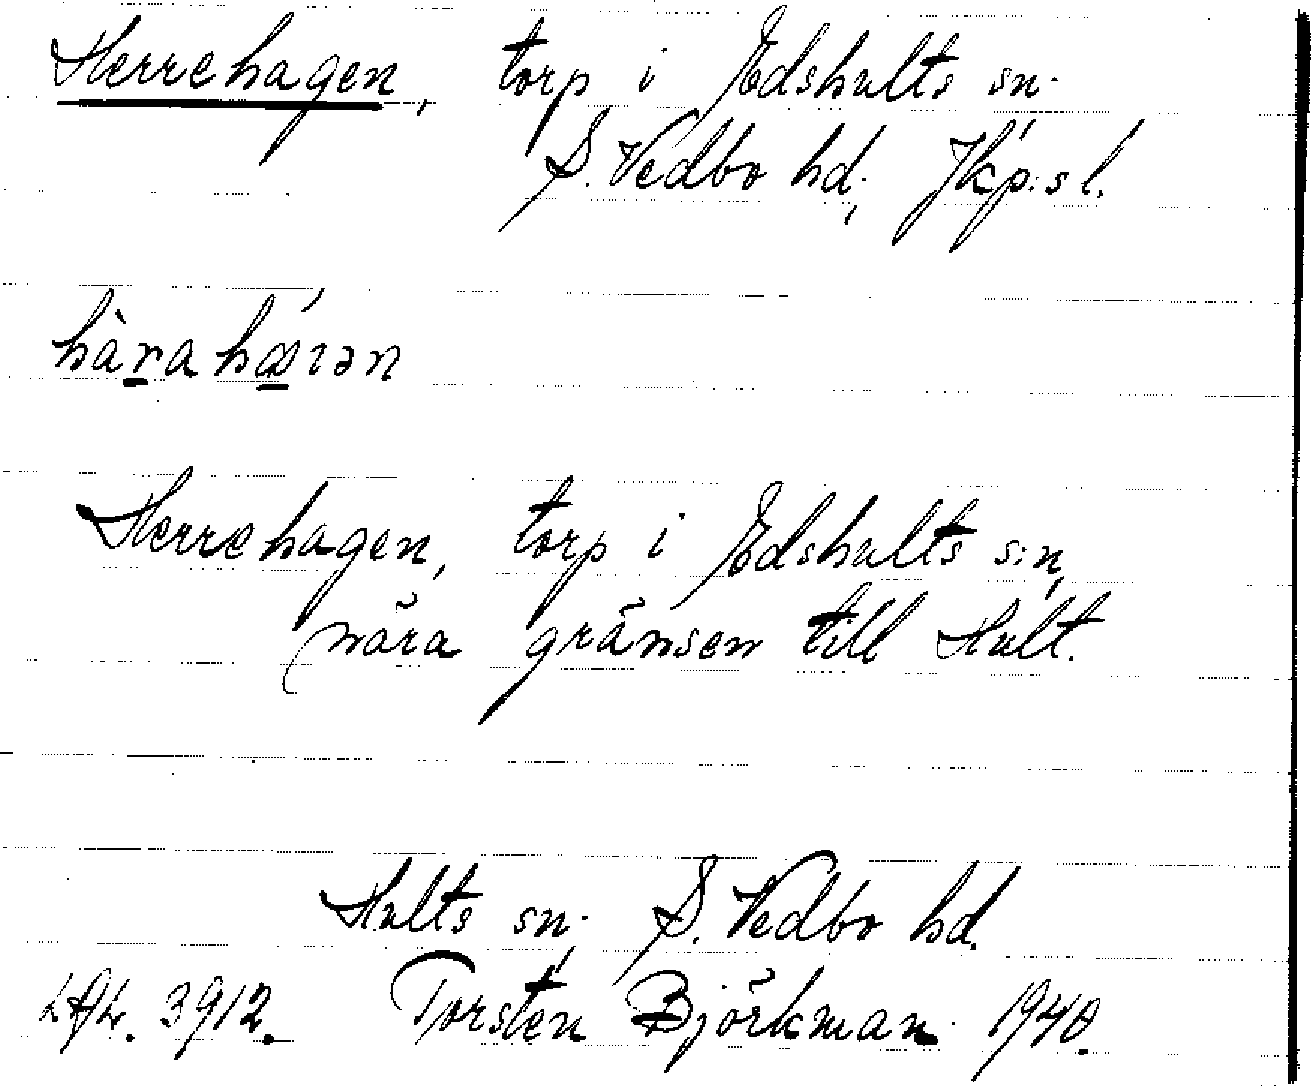 Herrehagen, torp i Edshults sn.
S. Vedbo hd, Jkp:s l.
Herrehagen, torp i Edshults s:n,
nära gränsen till Hult.
Hults sn. S. Vedbo hd.
3912. Torsten Björkman 1940.